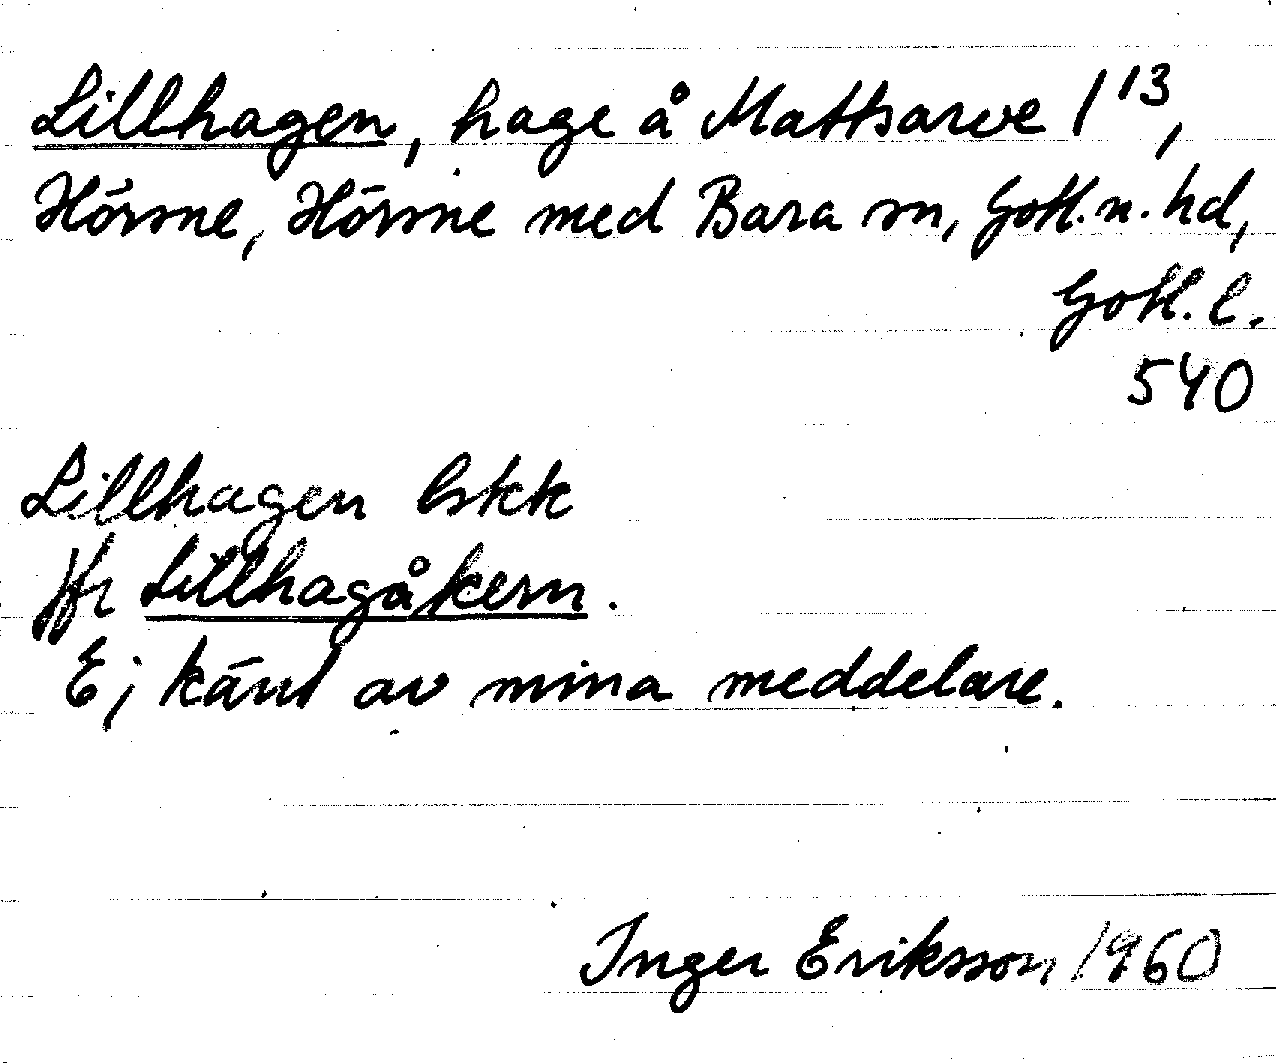 Lillhagen, hage å Mattsarve 1¹³,
Hörsne, Hörsne med Bara sn, Gotl. n. hd,
Gotl. l.
540
Lillhagen Eskk
Jfr Lillhagåkern.
Ej känt av mina meddelare.
Inger Eriksson 1960